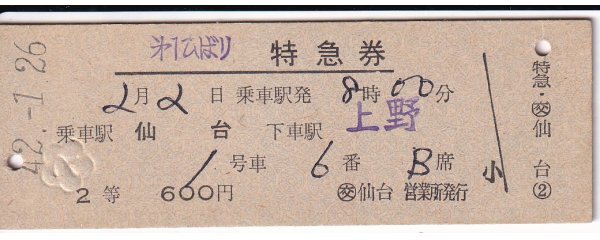 才1ひばり 特急券
2月2日 乗車駅発 8時00分
乗車駅 仙台 下車駅 上野
1号車 6番 B席
2等 600円 ㊋仙台営業所発行
42.-1.26
小
特急・㊋仙台②